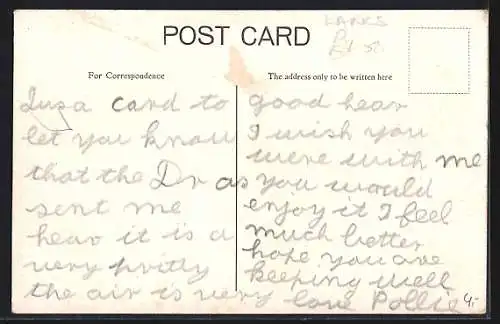 LANKS
POST CARD
For Correspondence
The address only to be written here
Jusa card to
let you know
that the Dr as
sent me
hear it is a
very pritty
the air is very
good hear
I wish you
were with me
as you would
enjoy it I feel
much better
hope you are
keeping well
love Pollie
4,-